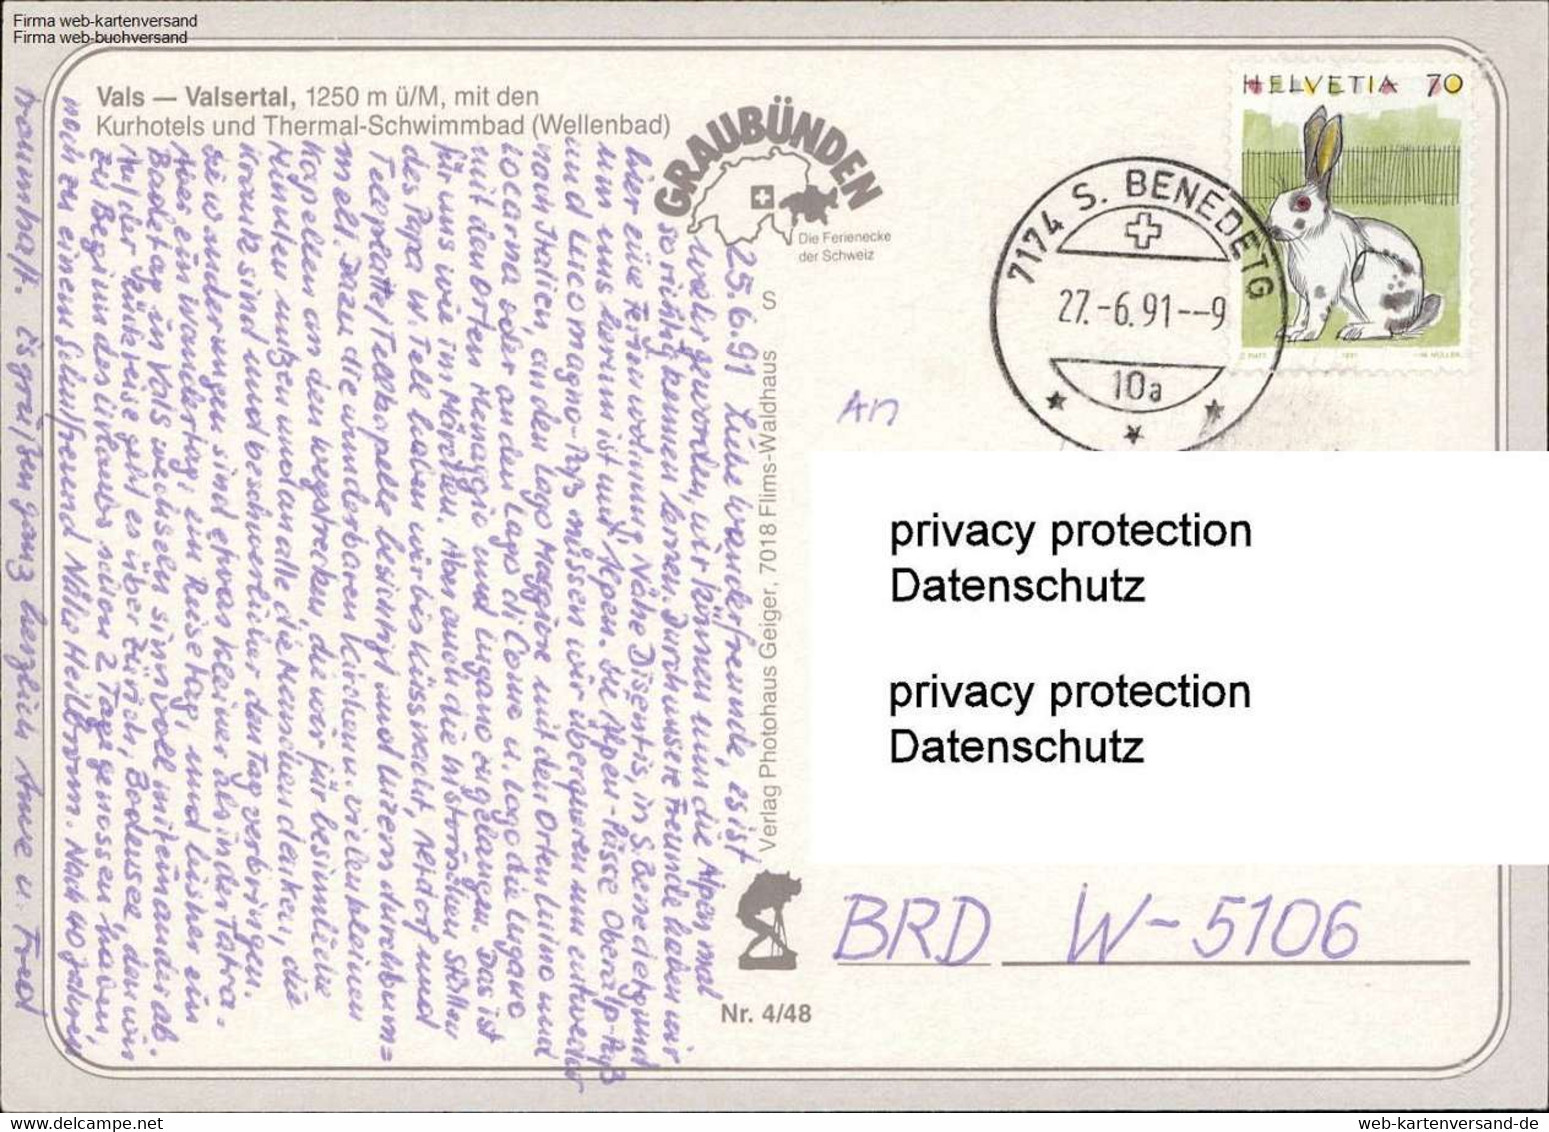 Firma web-kartenversand
Firma web-buchversand
Vals — Valsertal, 1250 m ü/M, mit den
Kurhotels und Thermal-Schwimmbad (Wellenbad)
GRAUBÜNDEN
Die Ferienecke
der Schweiz
HELVETIA 70
7174 S. BENEDETG
27.-6.91--9
10a
S
Verlag Photohaus Geiger, 7018 Flims-Waldhaus
Nr. 4/48
25.6.91 Liebe Wanderfreunde, es ist
wahr geworden, wir können nun die Alpen mal
so richtig kennen lernen. Durch unsere Freunde haben wir
hier eine Ferienwohnung Nähe Disentis, in S. Benedetg und
um uns herum ist nur Alpen. Die Alpen-Pässe Oberalp-Paß
und Lucomagno-Paß müssen wir überqueren um entweder
nach Italien an den Lago Maggiore mit den Orten Luino und
Locarno oder an den Lago di Como u. Lago di Lugano
mit den Orten Menaggio und Lugano zu gelangen. Das ist
für uns wie im Märchen. Aber auch die historischen Stätten
des Papa W. Tell haben wir bis Küssnacht, Altdorf und
Tellplatte/Tellkapelle besichtigt und Luzern durchbum=
melt. Dazu die wunderbaren Kirchen u. vielen kleinen
Kapellen an den Wegstrecken, die wir für besinnliche
Minuten nutzen und an alle, die Menschen denken, die
krank sind und beschwerlicher den Tag verbringen.
Die Wanderungen sind etwas kleiner als in der Tatra.
Aber ein Wandertag, ein Reisetag, und bisher ein
Badetag in Vals wechseln sinnvoll miteinander ab.
Auf der Rückreise geht es über Zürich, Bodensee, den wir
zu Beginn des Urlaubs schon 2 Tage genossen haben
noch zu einem Schulfreund Nähe Heilbronn. Nach 40 Jahren
traumhaft. Es grüßen ganz herzlich Anne u. Fred
An
privacy protection
Datenschutz
privacy protection
Datenschutz
BRD W-5106
web-kartenversand-de